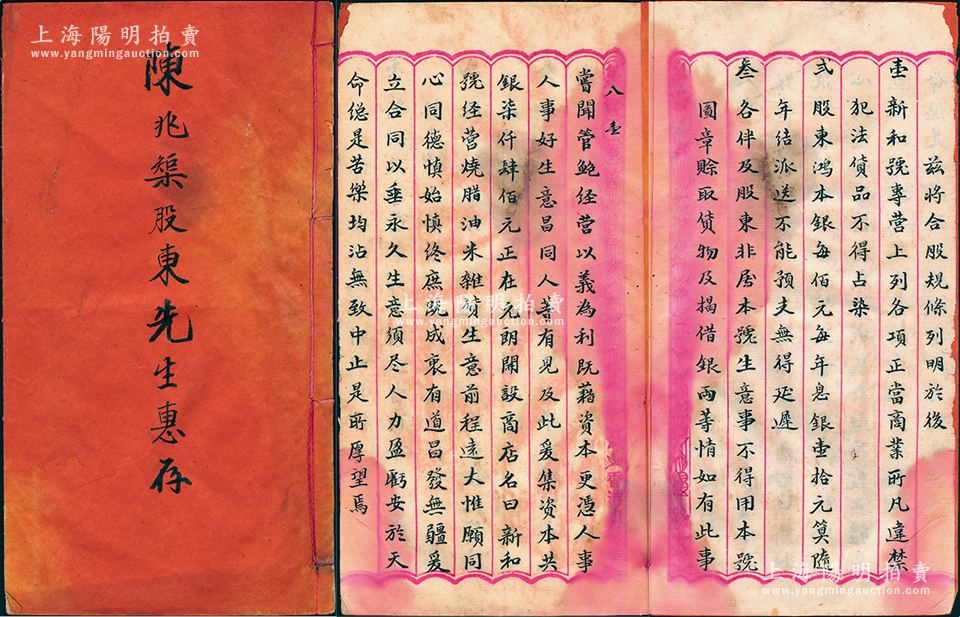 上海陽明拍賣
www.yangmingauction.com
陳兆榘股東先生惠存
茲將合股規條列明於後
壹 新和號專营上列各項正當商業所凡違禁
犯法貨品不得占染
弍 股東鴻本銀每佰元每年息銀壹拾元算隨
年結派送不能預支無得延遲
叁 各伴及股東非居本號生意事不得用本號
圖章賒取貨物及揭借銀両等情如有此事
八 壹
嘗聞管鲍经营以義為利既藉資本更憑人事
人事好生意昌同人等有見及此爰集資本共
銀柒仟肆佰元正在元朗開設商店名曰新和
號经营燒腊油米雜貨生意前程遠大惟願同
心同德慎始慎终庶既成衷有道昌發無疆爰
立合同以垂永久生意須尽人力盈虧安於天
命总是苦樂均沾無致中止是所厚望焉
上海陽明拍賣
www.yangmingauction.com
上海陽明拍賣
www.yangmingauction.com